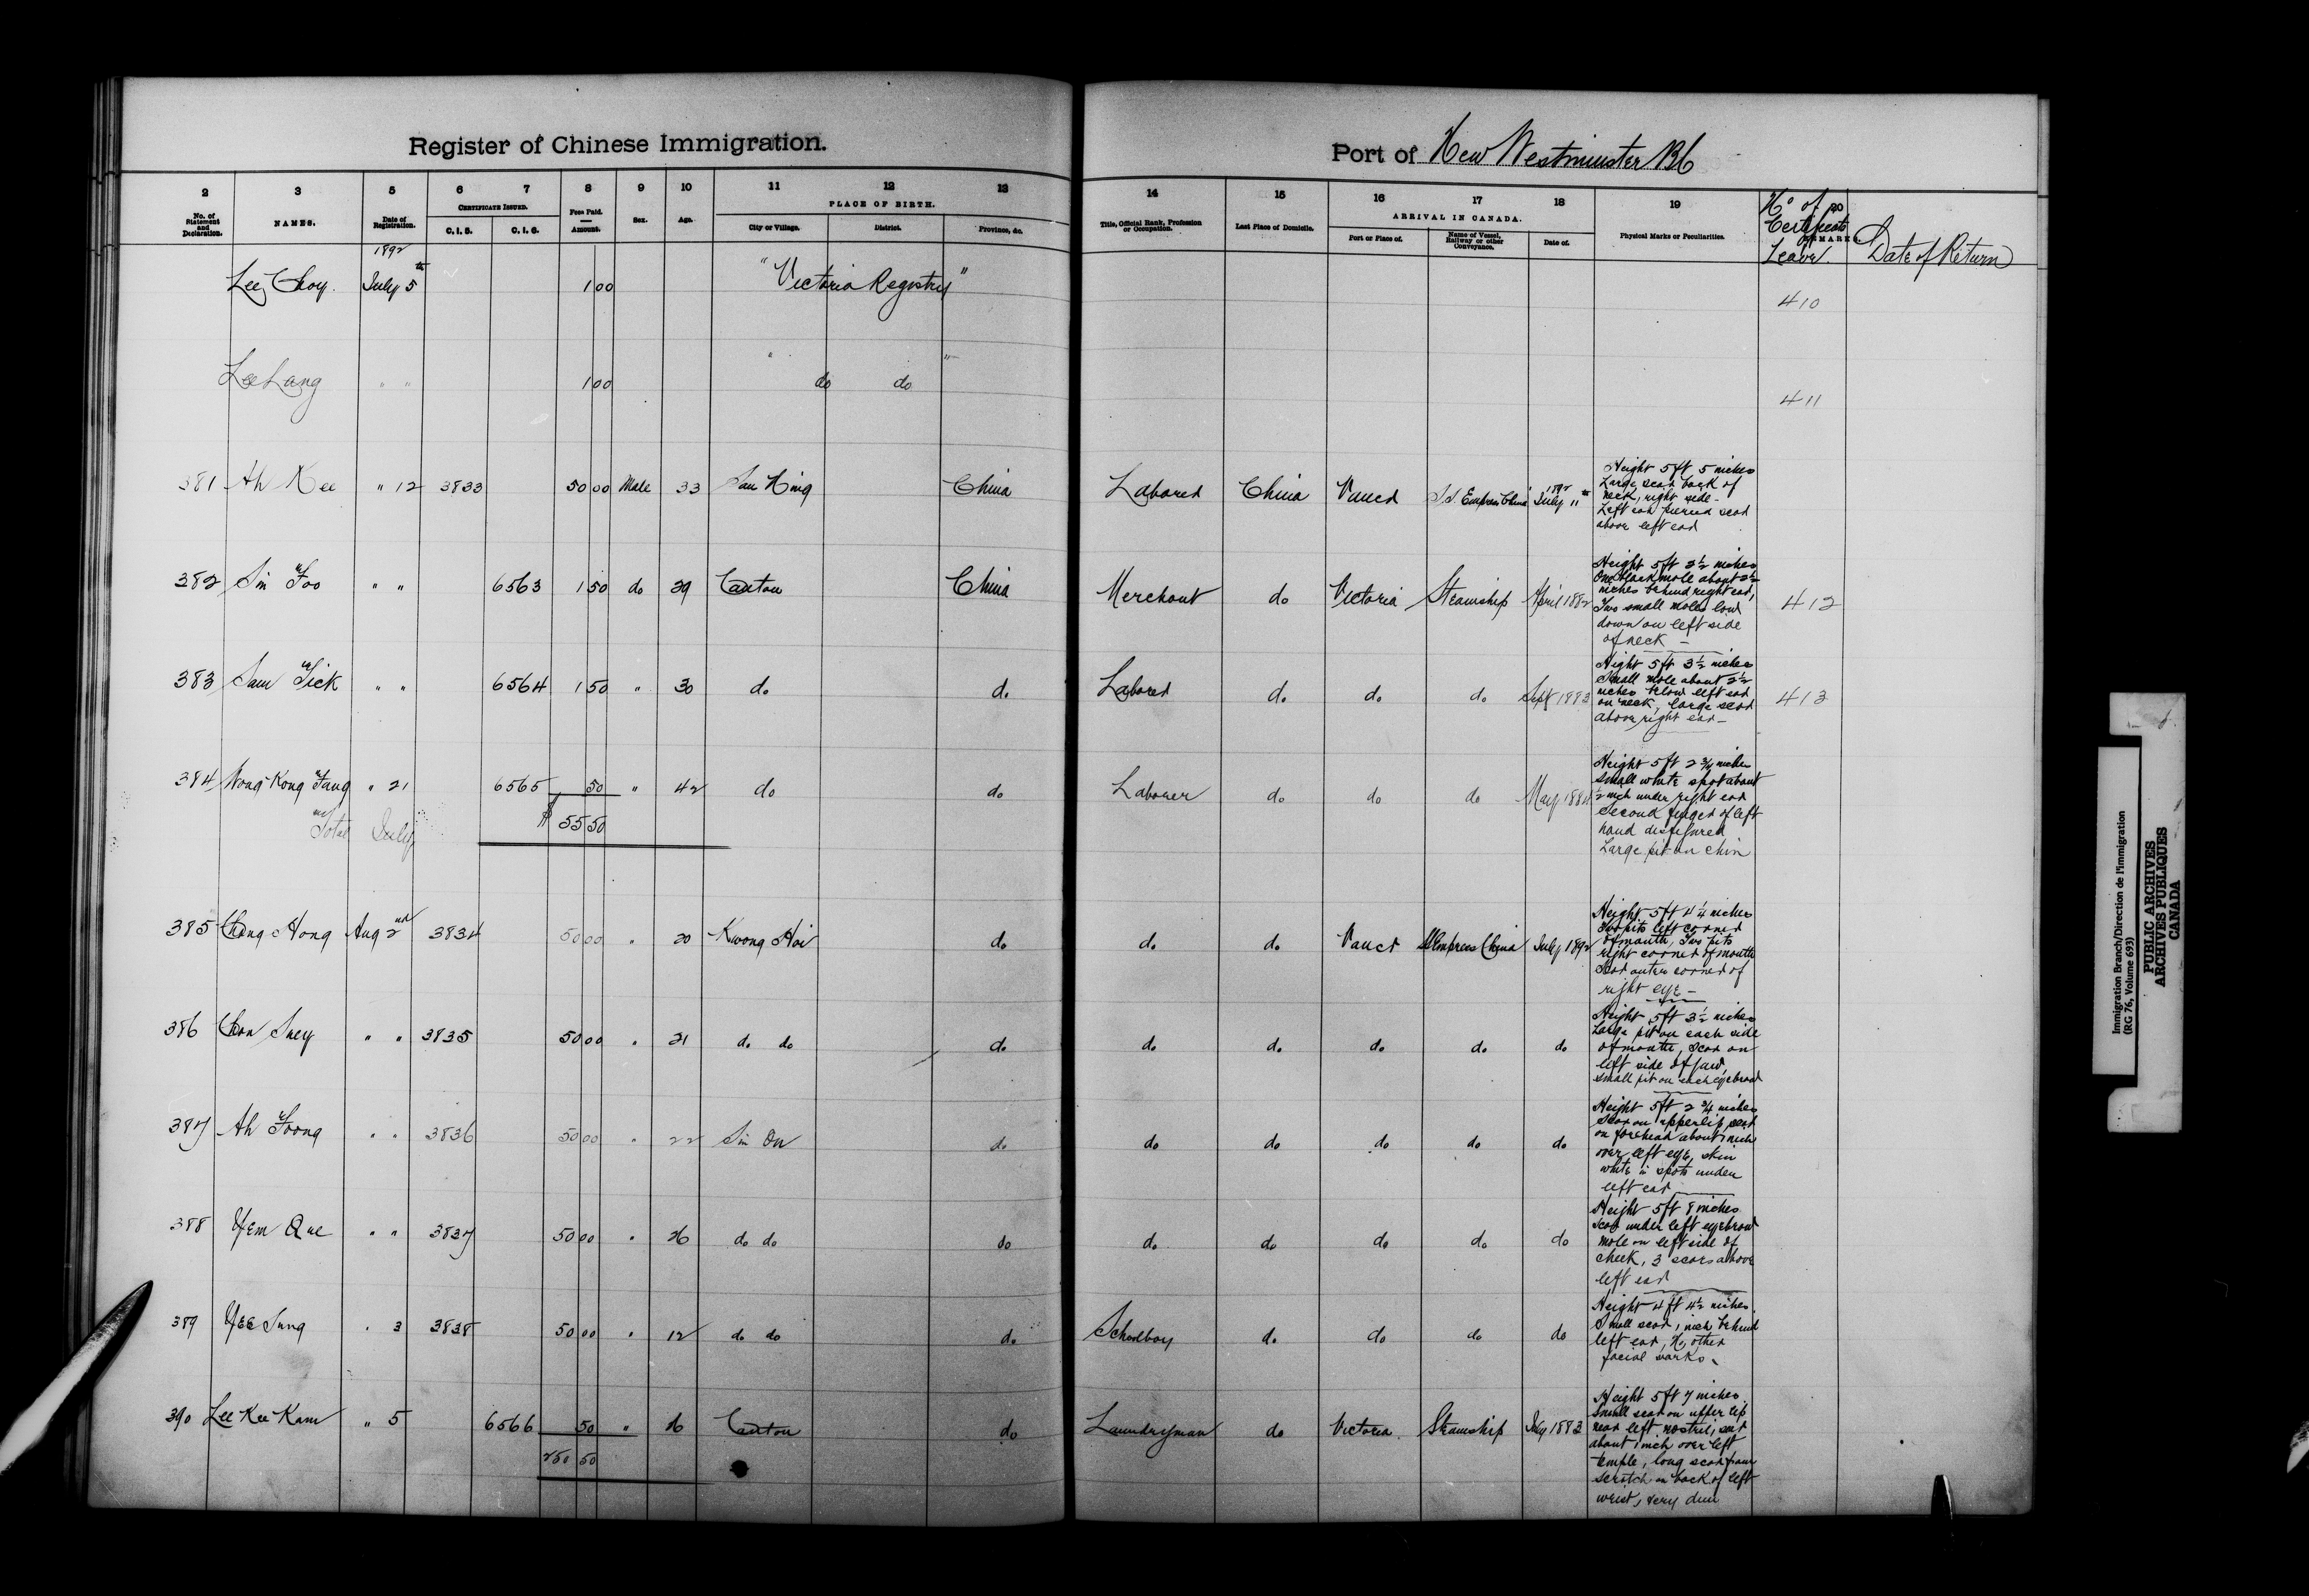 Register of Chinese Immigration.
Port of New Westminster BC
2 3 5 6 7 8 9 10 11 12 13
No. of Statement and Declaration. NAMES. Date of Registration. CERTIFICATE ISSUED. C.I.5. C.I.6. Fees Paid. Amount. Sex. Age. PLACE OF BIRTH. City or Village. District. Province, &c.
14 15 16 17 18 19 20
Title, Official Rank, Profession or Occupation. Last Place of Domicile. ARRIVAL IN CANADA. Port or Place of. Name of Vessel, Railway or other Conveyance. Date of. Physical Marks or Peculiarities. REMARKS.
No of Certificate Leave. Date of Return
1892
Lee Choy. July 5th 1 00 "Victoria Registry" 410
Lee Lang " " 1 00 " do do " 411
381 Ah Kee " 12 3833 50 00 Male 33 San Ning China Laborer China Vancr SS Empress China 1892 July 11th
Height 5 ft 5 inches
Large scar back of
neck, right side -
Left ear pierced scar
above left ear
382 Sin Foo " " 6563 1 50 do 29 Canton China Merchant do Victoria Steamship April 1882 412
Height 5 ft 2½ inches
One black mole about 2½
inches behind right ear,
Two small moles low
down on left side
of neck -
383 Sam Sick " " 6564 1 50 " 30 do do Laborer do do do Sept 1883 413
Height 5 ft 3½ inches
Small mole about 2½
inches below left ear
on neck, large scar
above right ear -
384 Wong Kong Fang " 21 6565 50 " 42 do do Laborer do do do May 1884
Total July $ 55 50
Height 5 ft 2¾ inches
small white spot about
½ inch under right ear
second finger of left
hand disfigured
Large pit on chin
385 Chong Hong Aug 2nd 3834 50 00 " 20 Kwong Hoi do do do Vancr SS Empress China July 1892
Height 5 ft 4¼ inches
Two pits left corner
of mouth, Two pits
right corner of mouth
Scar outer corner of
right eye -
386 Chon Suey " " 3835 50 00 " 21 do do do do do do do do
Height 5 ft 3½ inches
Large pit on each side
of mouth, Scar on
left side of jaw,
small pit on each eyebrow
387 Ah Foong " " 3836 50 00 " 22 Sin On do do do do do do
Height 5 ft 2¾ inches
Scar on upper lip, scar
on forehead about 1 inch
over left eye, skin
white in spots under
left ear
388 Yem Que " " 3837 50 00 " 26 do do do do do do do do
Height 5 ft 8 inches
Scar under left eyebrow
mole on left side of
cheek, 3 scars above
left ear
389 Yee Sung " 3 3838 50 00 " 12 do do do Schoolboy do do do do
Height 4 ft 4½ inches.
Small scar 1 inch behind
left ear, No other
facial marks.
390 Lee Kee Kam " 5 6566 50 " 26 Canton do Laundryman do Victoria Steamship July 1883
250 50
Height 5 ft 7 inches
Small scar on upper lip
near left nostril, scar
about 1 inch over left
temple, long scar from
scratch on back of left
wrist, very dim
Immigration Branch/Direction de l'immigration
(RG 76, Volume 693)
PUBLIC ARCHIVES
ARCHIVES PUBLIQUES
CANADA